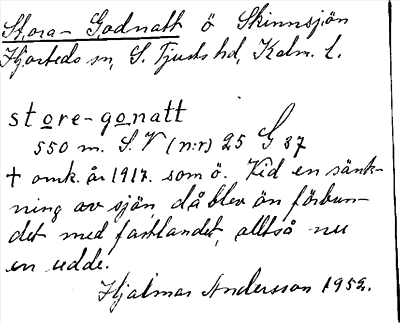 Stora-Godnatt ö Skinnsjön
Hjorteds sn, S. Tjusts hd, Kalm. l.
store-gonatt
550 m. S. V (n:r) 25 G 37
† omk. år 1917. som ö. Vid en sänk-
ning av sjön, då blev ön förbun-
det med fastlandet, alltså nu
en udde.
Hjalmar Andersson 1952.